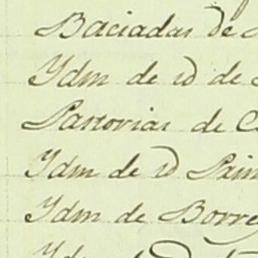 Baciadas de
Ydm de id de
Pastorias de C
Ydm de id Prin
Ydm de Borre
Ydm